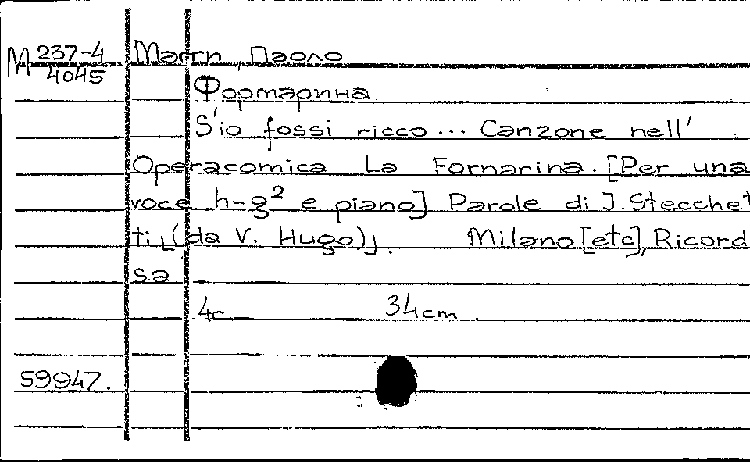 M 237-4 Магги, Паоло
4045
Форнарина
S'io fossi ricco... Canzone nell'
Operacomica La Fornarina. [Per una
voce h-g² e piano] Parole di J. Stecchet
ti⌊(da V. Hugo)⌋. Milano [etc], Ricord
sa
4c 34cm
59947.